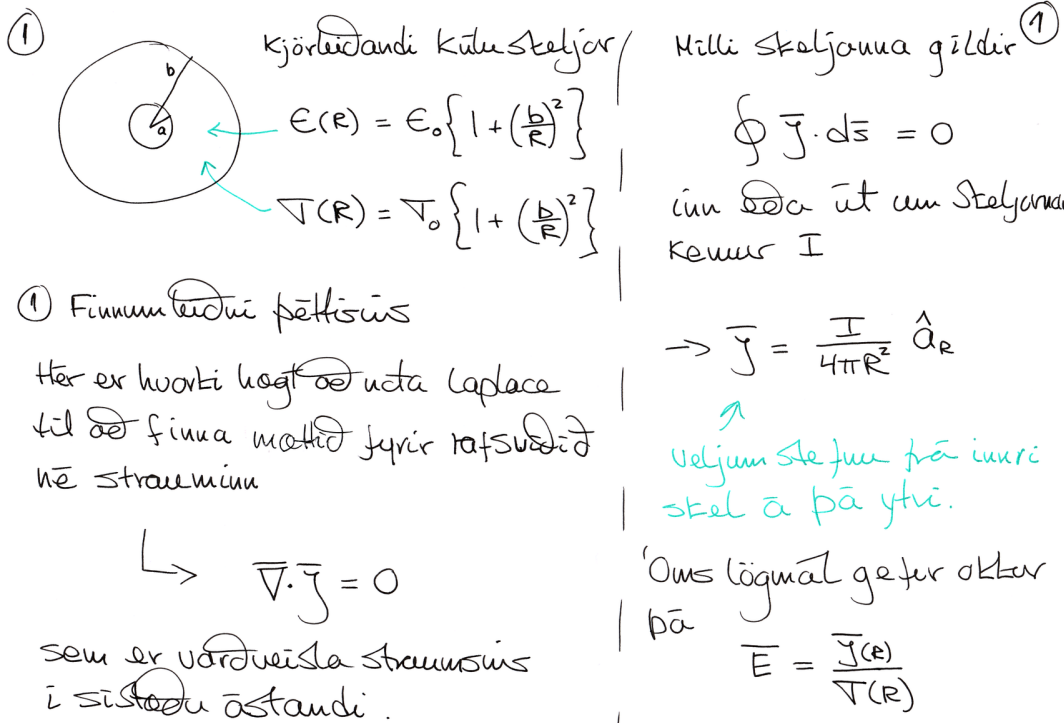 ①
b
a
Kjörleiðandi kúluskeljar
ϵ(R) = ϵ₀{1 + (b/R)²}
σ(R) = σ₀{1 + (b/R)²}
① Finnum leiðni þéttisins
Hér er hvorki hægt að nota Laplace
til að finna mættið fyrir rafsviðið
né strauminn
∇̄·J̄ = 0
sem er varðveisla straumsins
í sístæðu ástandi.
①
Milli skeljanna gildir
∮ J̄·ds̄ = 0
inn eða út um skeljarnar
kemur I
→ J̄ = I/(4πR²) â_R
Veljum stefnu frá innri
skel á þá ytri.
Óms lögmál gefur okkur
þá
Ē = J̄(R)/σ(R)